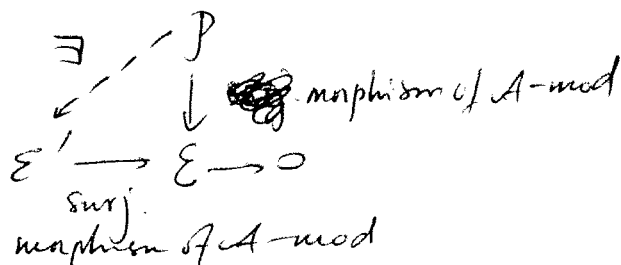 ∃ P
morphism of A-mod
ε' → ε → 0
surj.
morphism of A-mod